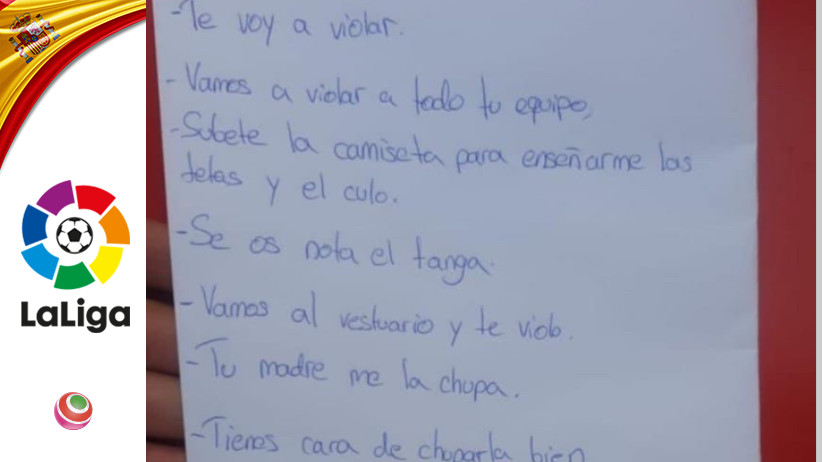 -Te voy a violar.
- Vamos a violar a todo tu equipo,
-Subete la camiseta para enseñarme las
tetas y el culo.
-Se os nota el tanga.
-Vamos al vestuario y te violo.
-Tu madre me la chupa.
-Tienes cara de chuparla bien
LaLiga